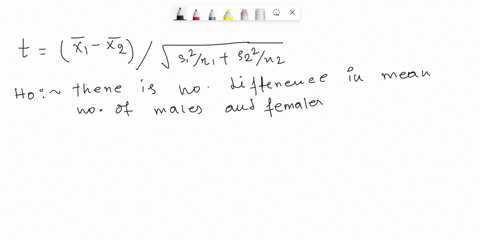 t = (x̄₁ - x̄₂) / √s₁²/n₁ + s₂²/n₂
Ho:~ there is no. difference in mean
no. of males and females